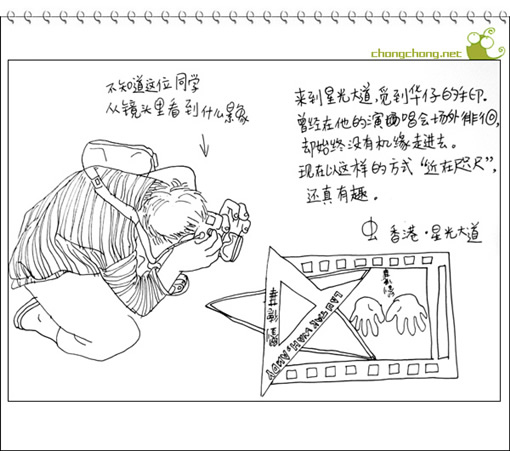 chongchong.net
不知道这位同学
从镜头里看到什么景象
来到星光大道,觅到华仔的手印.
曾经在他的演唱会场外徘徊,
却始终没有机缘走进去。
现在以这样的方式“近在咫尺”,
还真有趣。
虫 香港·星光大道
LAU TAK WAH, ANDY